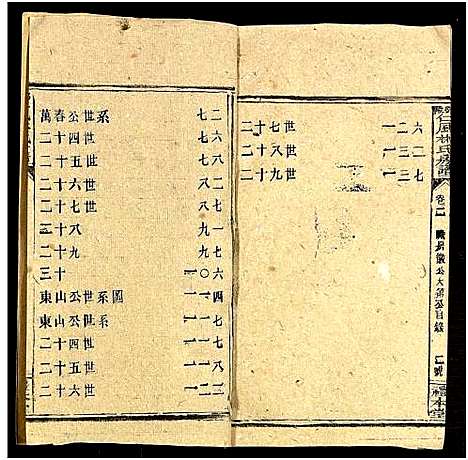 二十七世 一二六
二十八世 一三二
二十九世 一三七
萬春公世系 七二
二十四世 七六
二十五世 七八
二十六世 八二
二十七 八七
二十八 九一
二十九 九七
三十 一〇六
東山公世系圖 一一四
東山公世系 一一七
二十四世 一一七
二十五世 一一八
二十六世 一二二
仁風林氏房譜
卷二
儀公大公目錄
二號
本堂